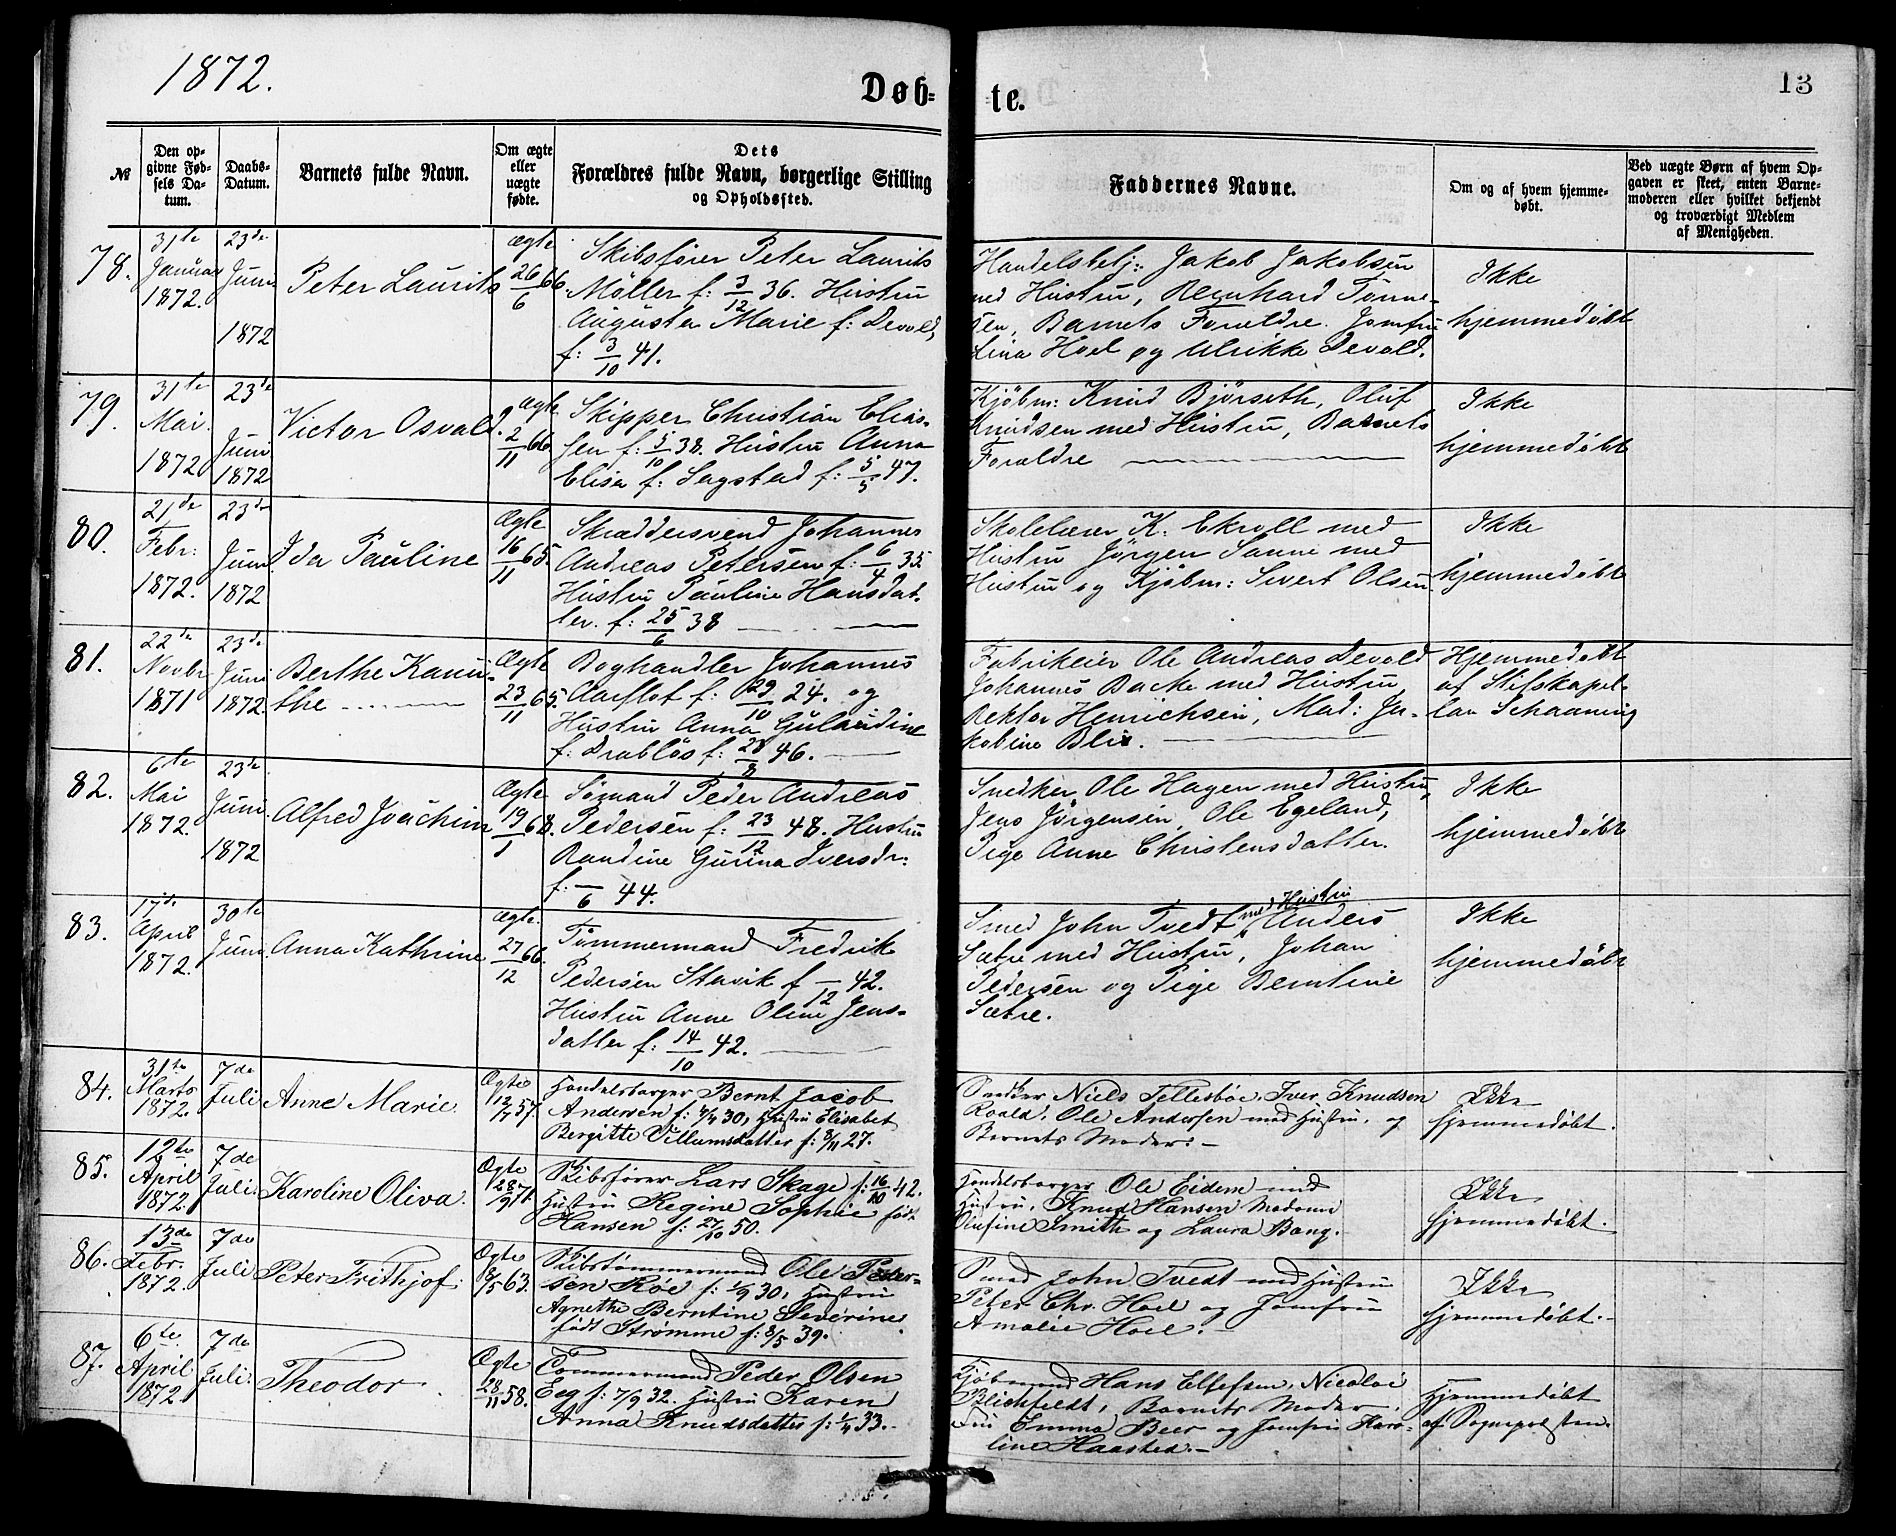 1872.
Døb-
te.
13
№
Den op-
givne Fød-
sels Da-
tum.
Daabs-
Datum.
Barnets fulde Navn.
Om ægte
eller
uægte
fødte.
Dets
Forældres fulde Navn, borgerlige Stilling
og Opholdssted.
Faddernes Navne.
Om og af hvem hjemme-
døbt.
Ved uægte Børn af hvem Op-
gaven er skeet, enten Barne-
moderen eller hvilket bekjendt
og troværdigt Medlem
af Menigheden.
78.
31te
Januar
1872.
23de
Juni
1872
Peter Laurits
Ægte
26/6 66.
Skibsfører Peter Laurits
Møller f: 3/12 36. Hustru
Augusta Marie f: Devold,
f: 3/10 41.
Handelsbetj: Jakob Jakobsen
med Hustru, Bernhard Tønne-
sen, Barnets Forældre. Jomfru
Lina Hoel og Ulrikke Devold.
Ikke
hjemmedøbt
79.
31te
Mai.
1872
23de
Juni
1872
Victor Osvald.
Ægte
2/11 66
Skipper Christian Elias-
sen f: 5/10 38. Hustru Anna
Elisa f: Sagstad f: 5/5 47.
Kjøbm: Knud Bjørseth, Oluf
Knudsen med Hustru, Barnets
Forældre
Ikke
hjemmedøbt
80.
21de
Febr:
1872.
23de
Juni
1872
Ida Pauline
Ægte
16/11 65.
Skræddersvend Johannes
Andreas Petersen f: 6/4 35.
Hustru Pauline Hansdat-
ter. f: 25/6 38
Skolelærer K. Ekroll med
Hustru Jørgen Sanne med
Hustru og Kjøbm: Sivert Olsen.
Ikke
hjemmedøbt
81.
22de
Novbr
1871
23de
Juni
1872.
Berthe Kanu-
the
Ægte
23/11 65.
Boghandler Johannes
Aarflot f: 29/10 24. og
Hustru Anna Gulaudine
f: Drabløs f: 28/8 46.
Fabrikeier Ole Andreas Devold
Johannes Backe med Hustru,
Rektor Henrichsen, Mad: Ja-
kobine Blix.
Hjemmedøbt
af Stifskapel-
lan Schaaning
82.
6te
Mai
1872.
23de
Juni.
1872
Alfred Joachim
Ægte
19/1 68.
Sømand Peder Andreas
Pedersen f: 23/12 48. Hustru
Randine Gurina Iversdr:
f: —/6 44.
Snedker Ole Hagen med Hustru,
Jens Jörgensen, Ole Egeland,
Pige Anne Christensdatter.
Ikke
hjemmedøbt
83.
17de
April
1872.
30te
Juni
Anna Kathrine
Ægte.
27/12 66.
Tømmermand Fredrik
Pedersen Stavik f —/12 42.
Hustru Anne Oline Jens-
datter f: 14/10 42.
Smed John Tvedt med Hustru Anders
Sætre med Hustru, Johan
Pedersen og Pige Berntine
Sætre.
Ikke
hjemmedøbt
84.
31te
Marts
1872.
7de
Juli
Anne Marie
Ægte
12/7 57.
Handelsborger Bernt Jacob
Andersen f: 4/4 30, Hustru Elisabet
Bergitte Villumsdatter f: 8/11 27.
Snedker Niels Tellesbøe, Iver Knudsen
Roald. Ole Andersen med Hustru, og
Barnets Moder. –
Ikke
hjemmedøbt.
85.
12te
April
1872.
7de
Juli
Karoline Oliva.
Ægte
28/9 71.
Skibsfører Lars Skage f: 16/10 42.
Hustru Regine Sophie født
Hansen f: 27/10 50.
Handelsborger Ole Eidem med
Hustru, Knud Hansen Madame
Olufine Smith og Laura Bang.
Ikke
hjemmedøbt.
86.
13de
Febr.
1872.
7de
Juli
Peter Frithjof.
Ægte
8/5 63.
Skibstømmermand Ole Peder-
sen Røe f: 1/9 30, Hustru
Agnethe Berntine Severine
født Strømme f: 8/5 39.
Smed John Tvedt med Hustru
Peter Chr. Hoel og Jomfru
Amalie Hoel. –
Ikke
hjemmedøbt.
87.
6te
April
1872
7de
Juli.
Theodor
Ægte
28/11 58.
Tømmermand Peder Olsen
Eeg f: 7/9 32. Hustru Karen
Anna Knudsdatter f: 1/4 33.
Kjøbmand Hans Ellefsen, Nicolai
Blichfeldt, Barnets Moder,
Fru Emma Beer og Jomfru Karo-
line Haasted. –
Hjemmedøbt
af Sognepræsten.